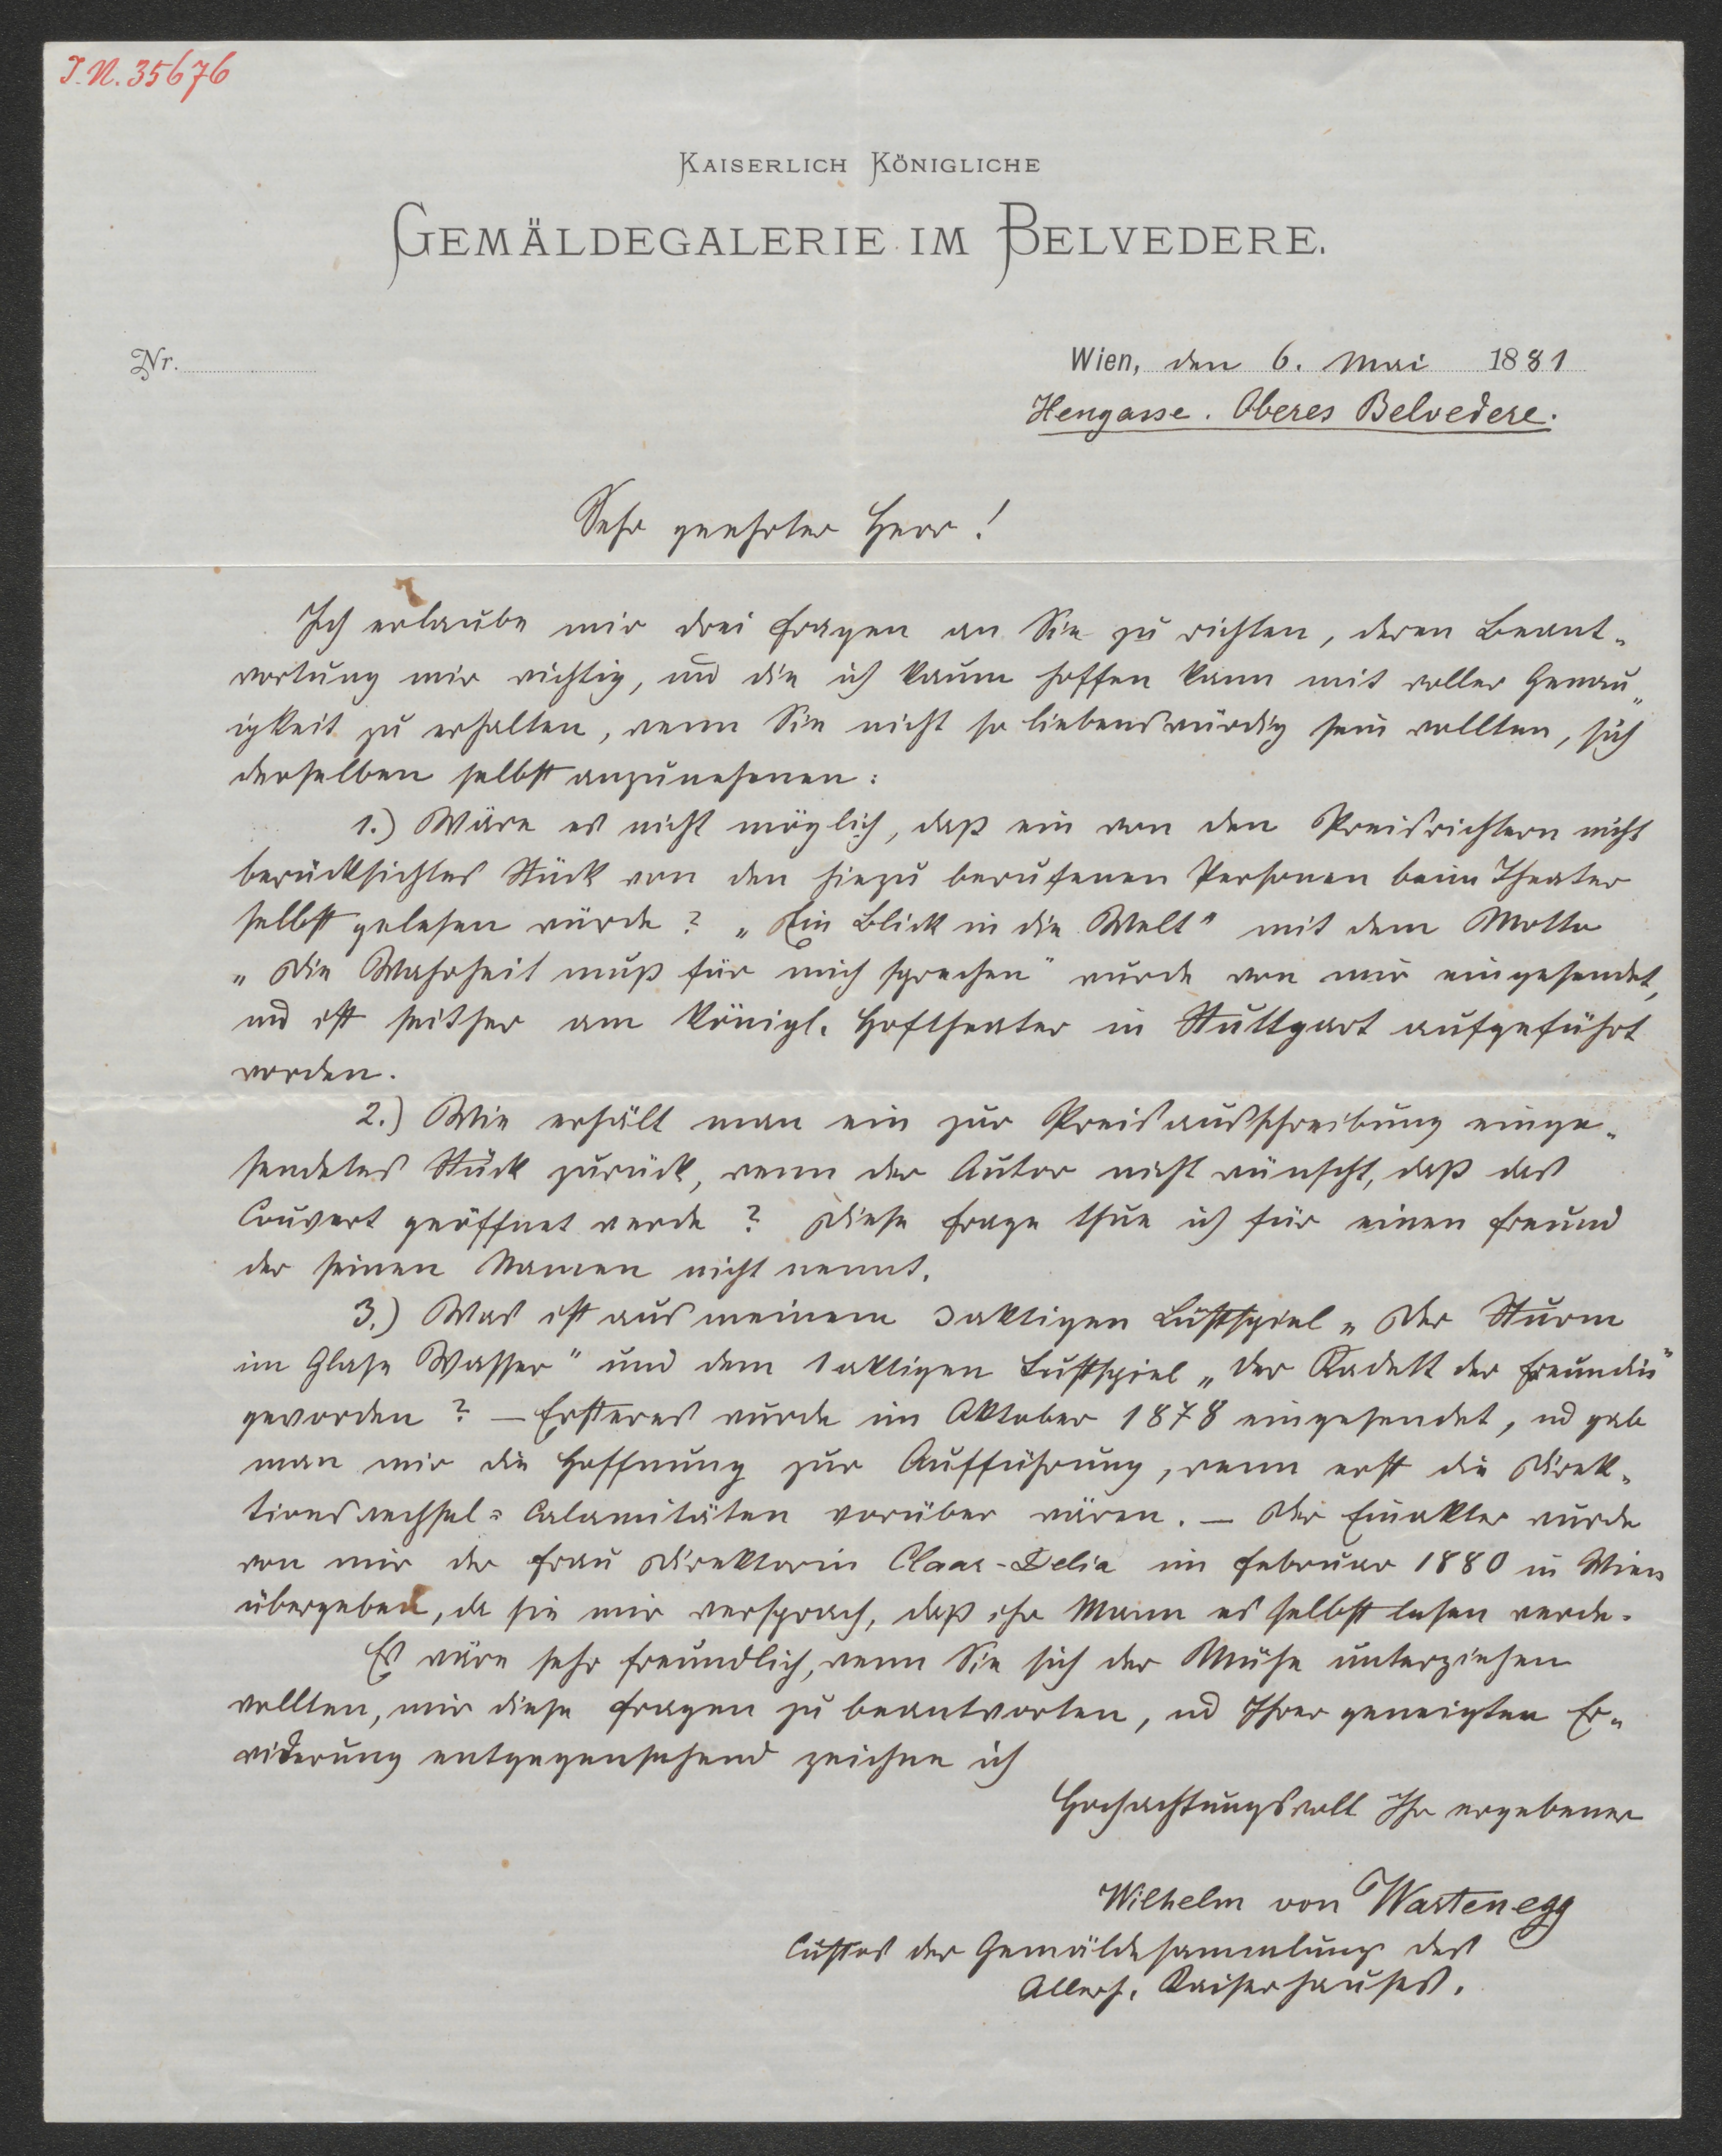 I.N. 35676
KAISERLICH KÖNIGLICHE
GEMÄLDEGALERIE IM BELVEDERE.
Nr.
Wien, den 6. Mai 1881
Heugasse. Oberes Belvedere.
Sehr geehrter Herr!
Ich erlaube mir drei Fragen an Sie zu richten, deren Beant-
wortung mir wichtig, und die ich kaum hoffen kann mit voller Genau-
igkeit zu erhalten, wenn Sie nicht so liebenswürdig sein wollten, sich
derselben selbst anzunehmen:
1.) Wäre es nicht möglich, daß ein von den Preisrichtern nicht
berücksichtes Stück von den hiezu berufenen Personen beim Theater
selbst gelesen würde? „Ein Blick in die Welt" mit dem Motto
„Die Wahrheit muß für mich sprechen" wurde von mir eingesendet,
und ist seither am königl. Hoftheater in Stuttgart aufgeführt
worden.
2.) Wie erhält man ein zur Preisausschreibung einge-
sendetes Stück zurück, wenn der Autor nicht wünscht, daß das
Couvert geöffnet werde? Diese Frage thue ich für einen Freund
der seinen Namen nicht nennt.
3.) Was ist aus meinem 3aktigen Lustspiel „Der Sturm
im Glase Wasser" und dem 1aktigen Lustspiel „Der Kadett der Freundin"
geworden? — Ersteres wurde im Oktober 1878 eingesendet, ud gab
man mir die Hoffnung zur Aufführung, wenn erst die Direk-
tionswechsel-Calamitäten vorüber wären. — Der Einakter wurde
von mir der Frau Direktorin Claar-Delia im Februar 1880 in Wien
übergeben, da sie mir versprach, daß ihr Mann es selbst lesen werde.
Es wäre sehr freundlich, wenn Sie sich der Mühe unterziehen
wollten, mir diese Fragen zu beantworten, ud Ihrer geneigten Er-
widerung entgegensehend zeichne ich
Hochachtungsvoll Ihr ergebener
Wilhelm von Wartenegg
Custos der Gemäldesammlung des
Allerh. Kaiserhauses.